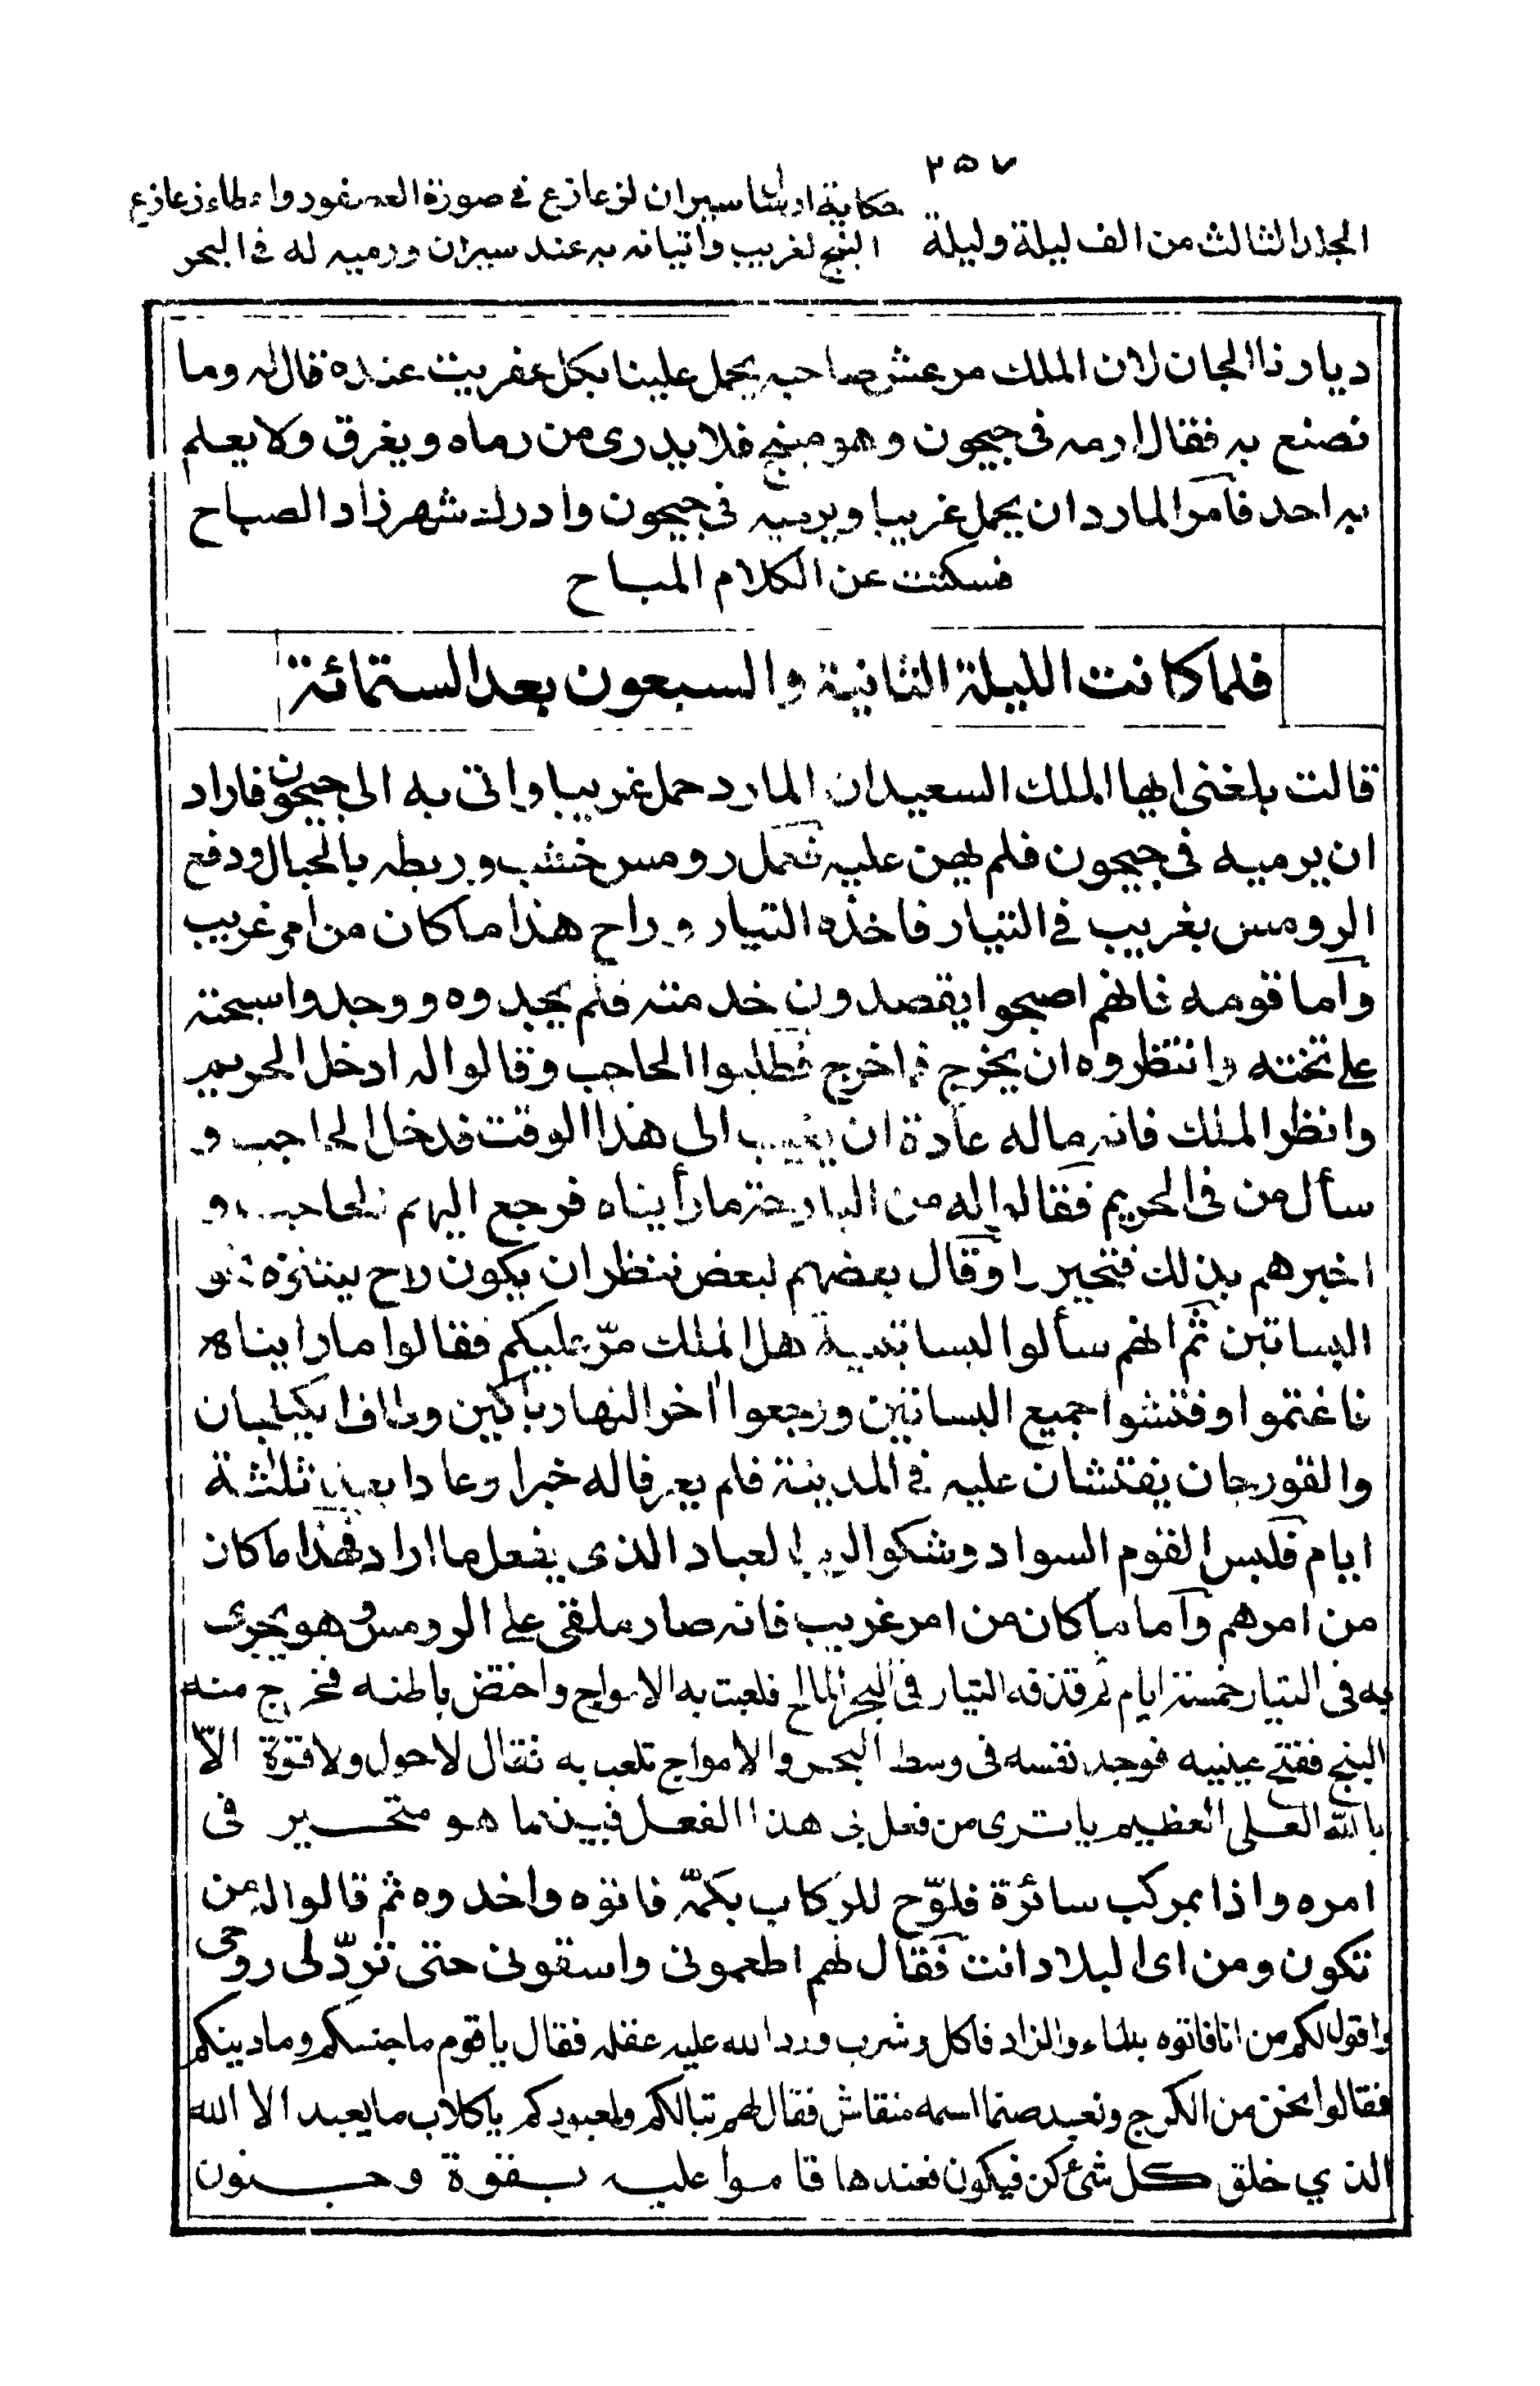 ٢٥٧
حكاية ارسال سيران لزعازع في صورة العصفور واعطاء زعازع
المجلد الثالث من الف ليلة وليلة البنج لغريب واتيانه به عند سيران ورميه له في البحر
ديارنا الجان لان الملك مرعش صاحبه يحمل علينا بكل عفريت عنده قال له وما
نصنع به فقال ارمه في جيحون وهو مبنج فلا يدرى من رماه ويغرق ولا يعلم
به احد فآمر المارد ان يحمل غريبا ويرميه في جيحون وادرك شهرزاد الصباح
فسكتت عن الكلام المباح
فلما كانت الليلة الثانية والسبعون بعد الستمائة
قالت بلغنى ايها الملك السعيد ان المارد حمل غريبا واتى به الى جيحون فاراد
ان يرميه في جيحون فلم يهن عليه فعمل رومس خشب وربطه بالحبال ودفع
الرومس بغريب في التيار فاخذه التيار وراح هذا ما كان من امر غريب
وآما قومه فانهم اصبحوا يقصدون خدمته فلم يجدوه ووجدوا سبحته
على تخته وانتظروه ان يخرج فما خرج فطلبوا الحاجب وقالوا له ادخل الحريم
وانظر الملك فانه ما له عادة ان يغيب الى هذا الوقت فدخل الحاجب و
سأل من في الحريم فقالوا له من البارحة ما رأيناه فرجع اليهم الحاجب و
اخبرهم بذلك فتحيروا وقال بعضهم لبعض ننظر ان يكون راح يتنزه نحو
البساتين ثم انهم سألوا البساتنية هل الملك مرّ عليكم فقالوا ما رايناه
فاغتموا وفتشوا جميع البساتين ورجعوا آخر النهار باكين وطاف الكيلجان
والقورجان يفتشان عليه في المدينة فلم يعرفا له خبرا وعادا بعد ثلثة
ايام فلبس القوم السواد وشكوا الى رب العباد الذى يفعل ما اراد فهذا ما كان
من امرهم وآما ما كان من امر غريب فانه صار ملقى على الرومس وهو يجرى
به في التيار خمسة ايام ثم قذفه التيار في البحر المالح فلعبت به الامواج واختض باطنه فخرج منه
البنج ففتح عينيه فوجد نفسه في وسط البحر والامواج تلعب به فقال لا حول ولا قوّة الّا
بالله العلى العظيم يا ترى من فعل بى هذا الفعل فبينما هو متحير في
امره واذا بمركب سائرة فلوّح للركاب بكمّه فاتوه واخذوه ثم قالوا له من
تكون ومن اى البلاد انت فقال لهم اطعمونى واسقونى حتى تردّ لى روحى
واقول لكم من انا فاتوه بالماء والزاد فاكل وشرب ورد الله عليه عقله فقال يا قوم ما جنسكم وما دينكم
فقالوا نحن من الكرج ونعبد صنما اسمه منقاش فقال لهم تبا لكم ولمعبودكم يا كلاب ما يعبد الا الله
الذي خلق كل شئ كن فيكون فعندها قاموا عليه بقوة وجنون